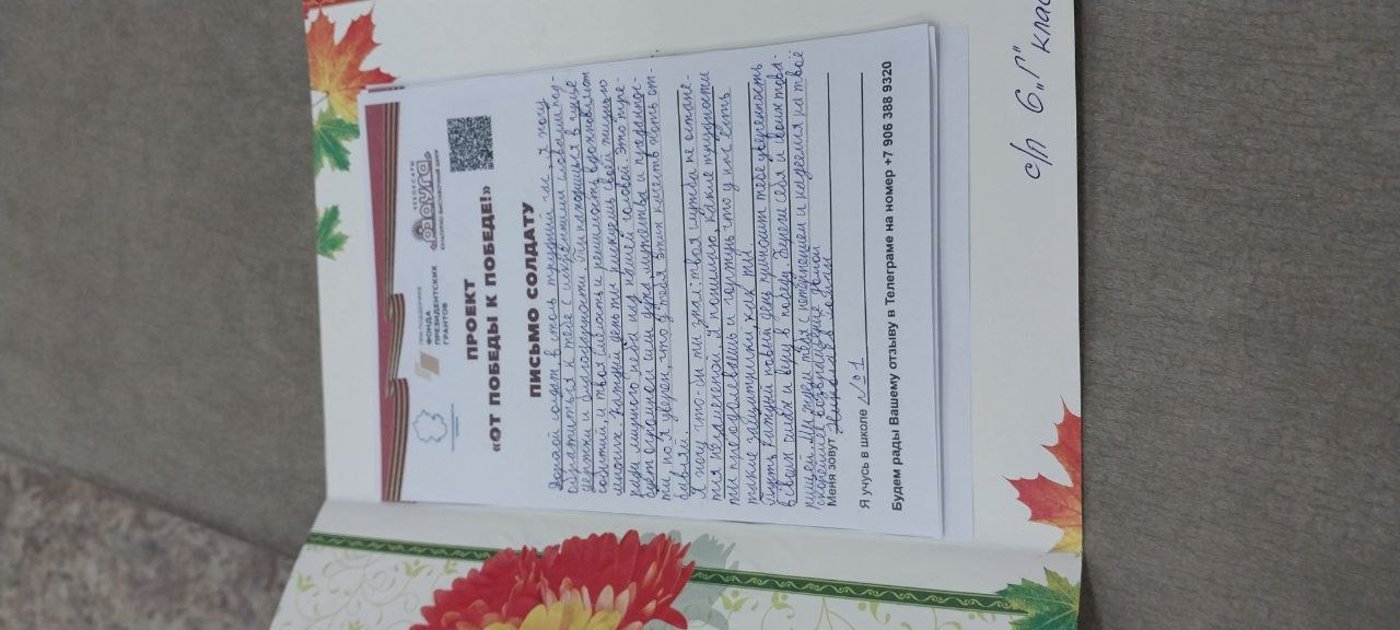 ПРИ ПОДДЕРЖКЕ
ФОНДА
ПРЕЗИДЕНТСКИХ
ГРАНТОВ
ЧЕБОКСАРЫ
радуга
КУЛЬТУРНО-ВЫСТАВОЧНЫЙ ЦЕНТР
ПРОЕКТ
«ОТ ПОБЕДЫ К ПОБЕДЕ!»
ПИСЬМО СОЛДАТУ
Дорогой солдат, в столь трудный час я хочу
обратиться к тебе с искренними словами под-
держки и благодарности. Ты находишься в гуще
событий, и твоя смелость и решимость вдохновляют
многих. Каждый день ты рискуешь своей жизнью
ради мирного неба над нашей головой. Это тре-
бует огромной силы духа, мужества и преданнос-
ти, но я уверен, что у тебя этих качеств хоть от-
бавляй.
Я хочу, что-бы ты знал: твоя служба не остане-
тся незамеченой. Я понимаю, какие трудности
ты преодолеваешь и горжусь, что у нас есть
такие защитники, как ты.
Пусть каждый новый день приносит тебе уверенность
в своих силах и веру в победу. Береги себя и своих това-
рищей. Мы ждём тебя с нетерпением и надеемся на твоё
скорейшее возвращение домой
Меня зовут
Я учусь в школе №1
Будем рады Вашему отзыву в Телеграме на номер +7 906 388 9320
с/п 6 „Г" клас